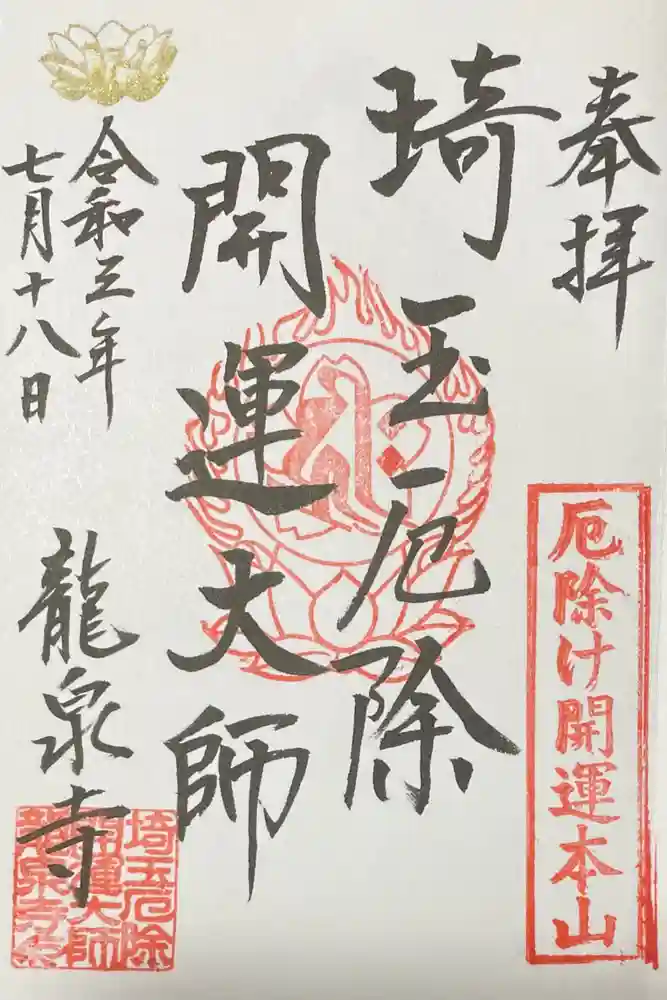 奉拝
厄除け開運本山
埼玉厄除
開運大師
令和三年
七月十八日
龍泉寺
埼玉厄除
開運大師
龍泉寺